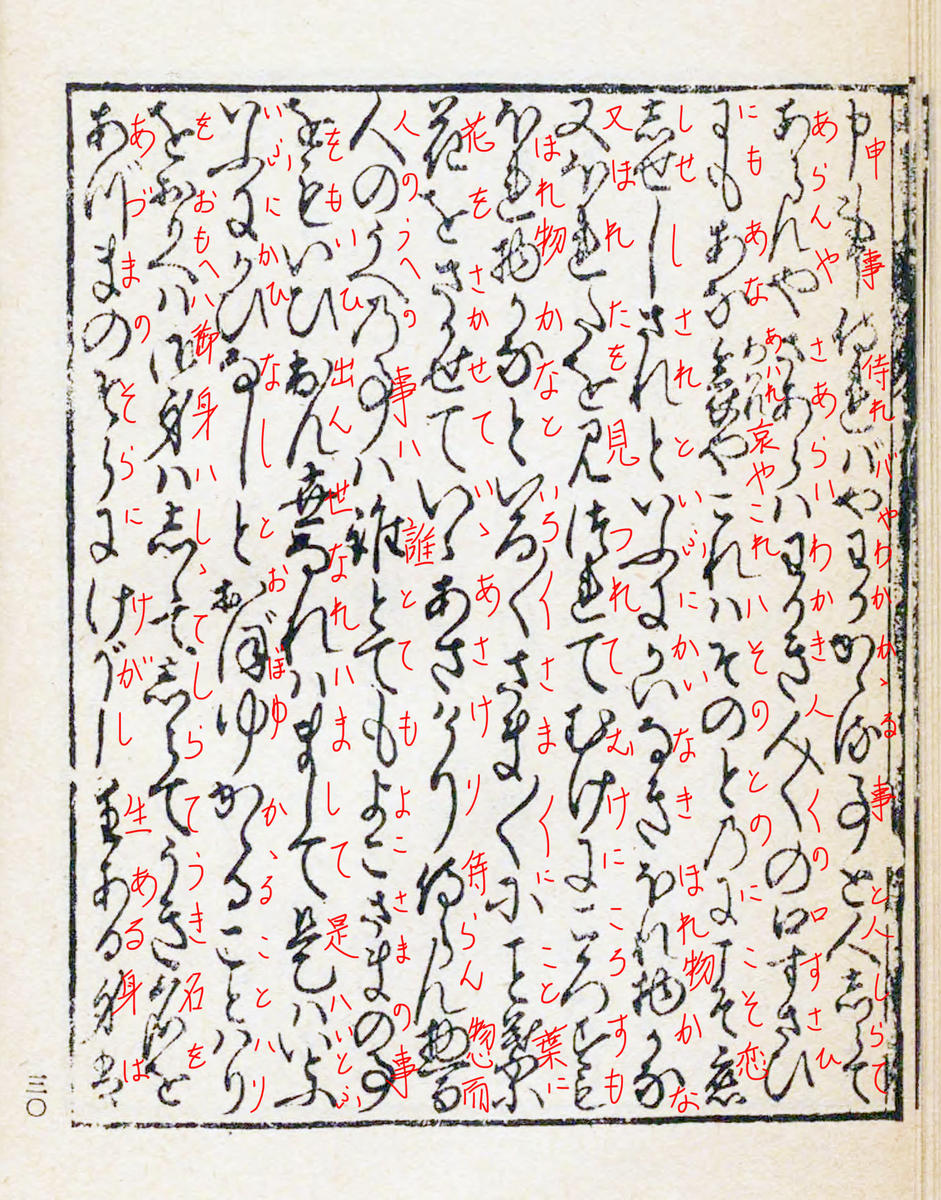 申事侍れバやわかかゝる事と人しらて
あらんやさあらいわかき人〱の口すさひ
にもあなあハれ哀やこれハそのとのにこそ恋
しせしされといふにかいなきほれ物かな
又ほれたを見つれてむけにころすも
ほれ物かなといろ〱さま〱にこと葉に
花をさかせていゝあさけり侍らん惣而
人のうへの事ハ誰とてもよこさまの事
をもいひ出ん世なれハまして是ハいとふ
いふにかひなしとおぼゆかゝることハり
をおもへハ御身ハしゝてしらてうき名を
あづまのそらにけがし生ある身は
三〇